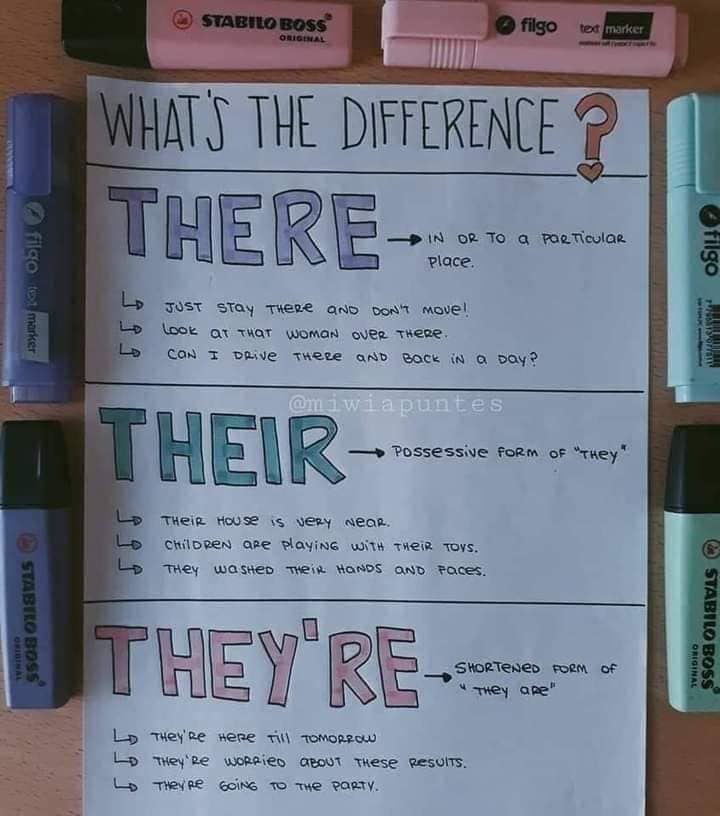 STABILO BOSS
ORIGINAL
filgo text marker
WHAT'S THE DIFFERENCE?
THERE → IN OR TO a PARTICULAR
PLACE.
↳ JUST STAY THERE AND DON'T MOVE!
↳ LOOK AT THAT WOMAN OVER THERE.
↳ CAN I DRIVE THERE AND BACK IN a DAY?
@miwiapuntes
THEIR → POSSESSIVE FORM OF "THEY"
↳ THEIR HOUSE IS VERY NEAR.
↳ CHILDREN ARE PLAYING WITH THEIR TOYS.
↳ THEY WASHED THEIR HANDS AND FACES.
THEY'RE → SHORTENED FORM OF
"THEY ARE"
↳ THEY'RE HERE TILL TOMORROW
↳ THEY'RE WORRIED ABOUT THESE RESULTS.
↳ THEY'RE GOING TO THE PARTY.
filgo text marker
STABILO BOSS
ORIGINAL
filgo
STABILO BOSS
ORIGINAL